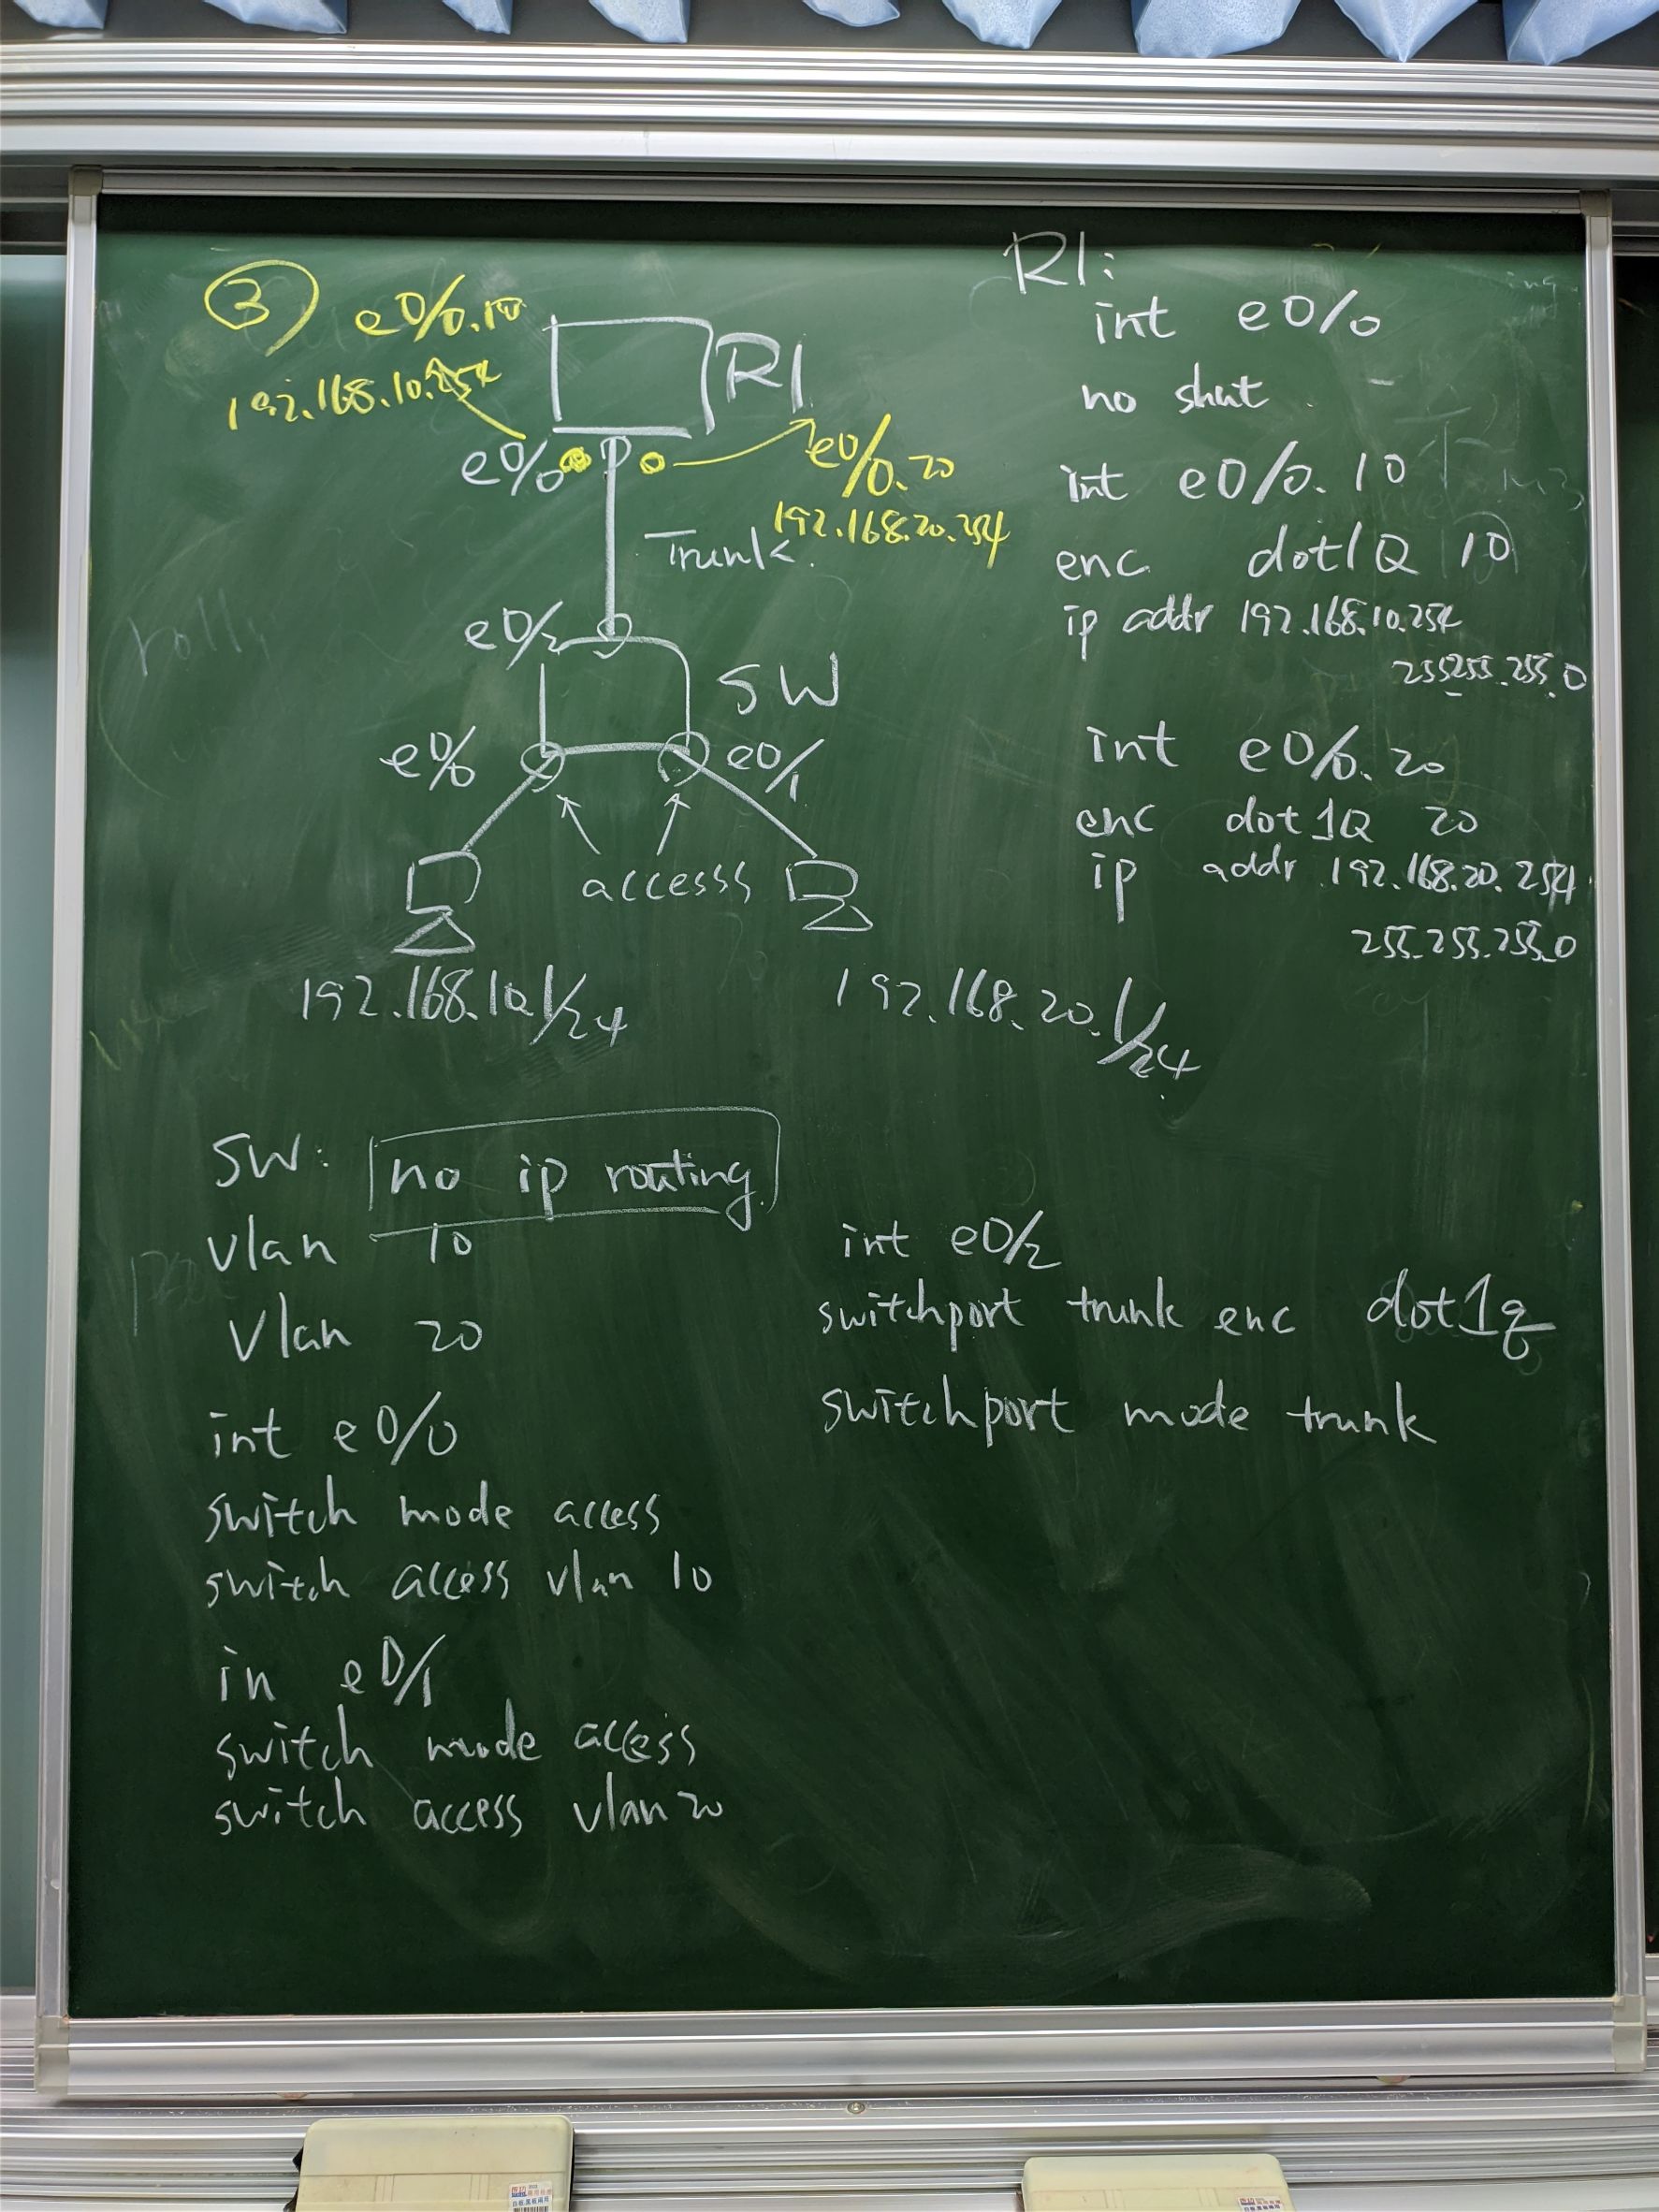 ③
e0/0.10
192.168.10.254
R1
e0/0
e0/0.20
192.168.20.254
Trunk.
e0/2
SW
e0/0
e0/1
accesss
192.168.10.1/24
192.168.20.1/24
R1:
int e0/0
no shut
int e0/0.10
enc dot1Q 10
ip addr 192.168.10.254
255255.255.0
int e0/0.20
enc dot1Q 20
ip addr 192.168.20.254
255.255.255.0
SW: no ip routing
vlan 10
vlan 20
int e0/0
switch mode access
switch access vlan 10
in e0/1
switch mode access
switch access vlan 20
int e0/2
switchport trunk enc dot1q
switchport mode trunk